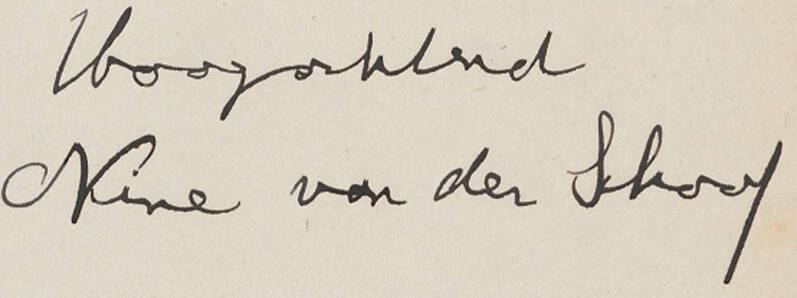 Hoogachtend
Nine van der Schaaf